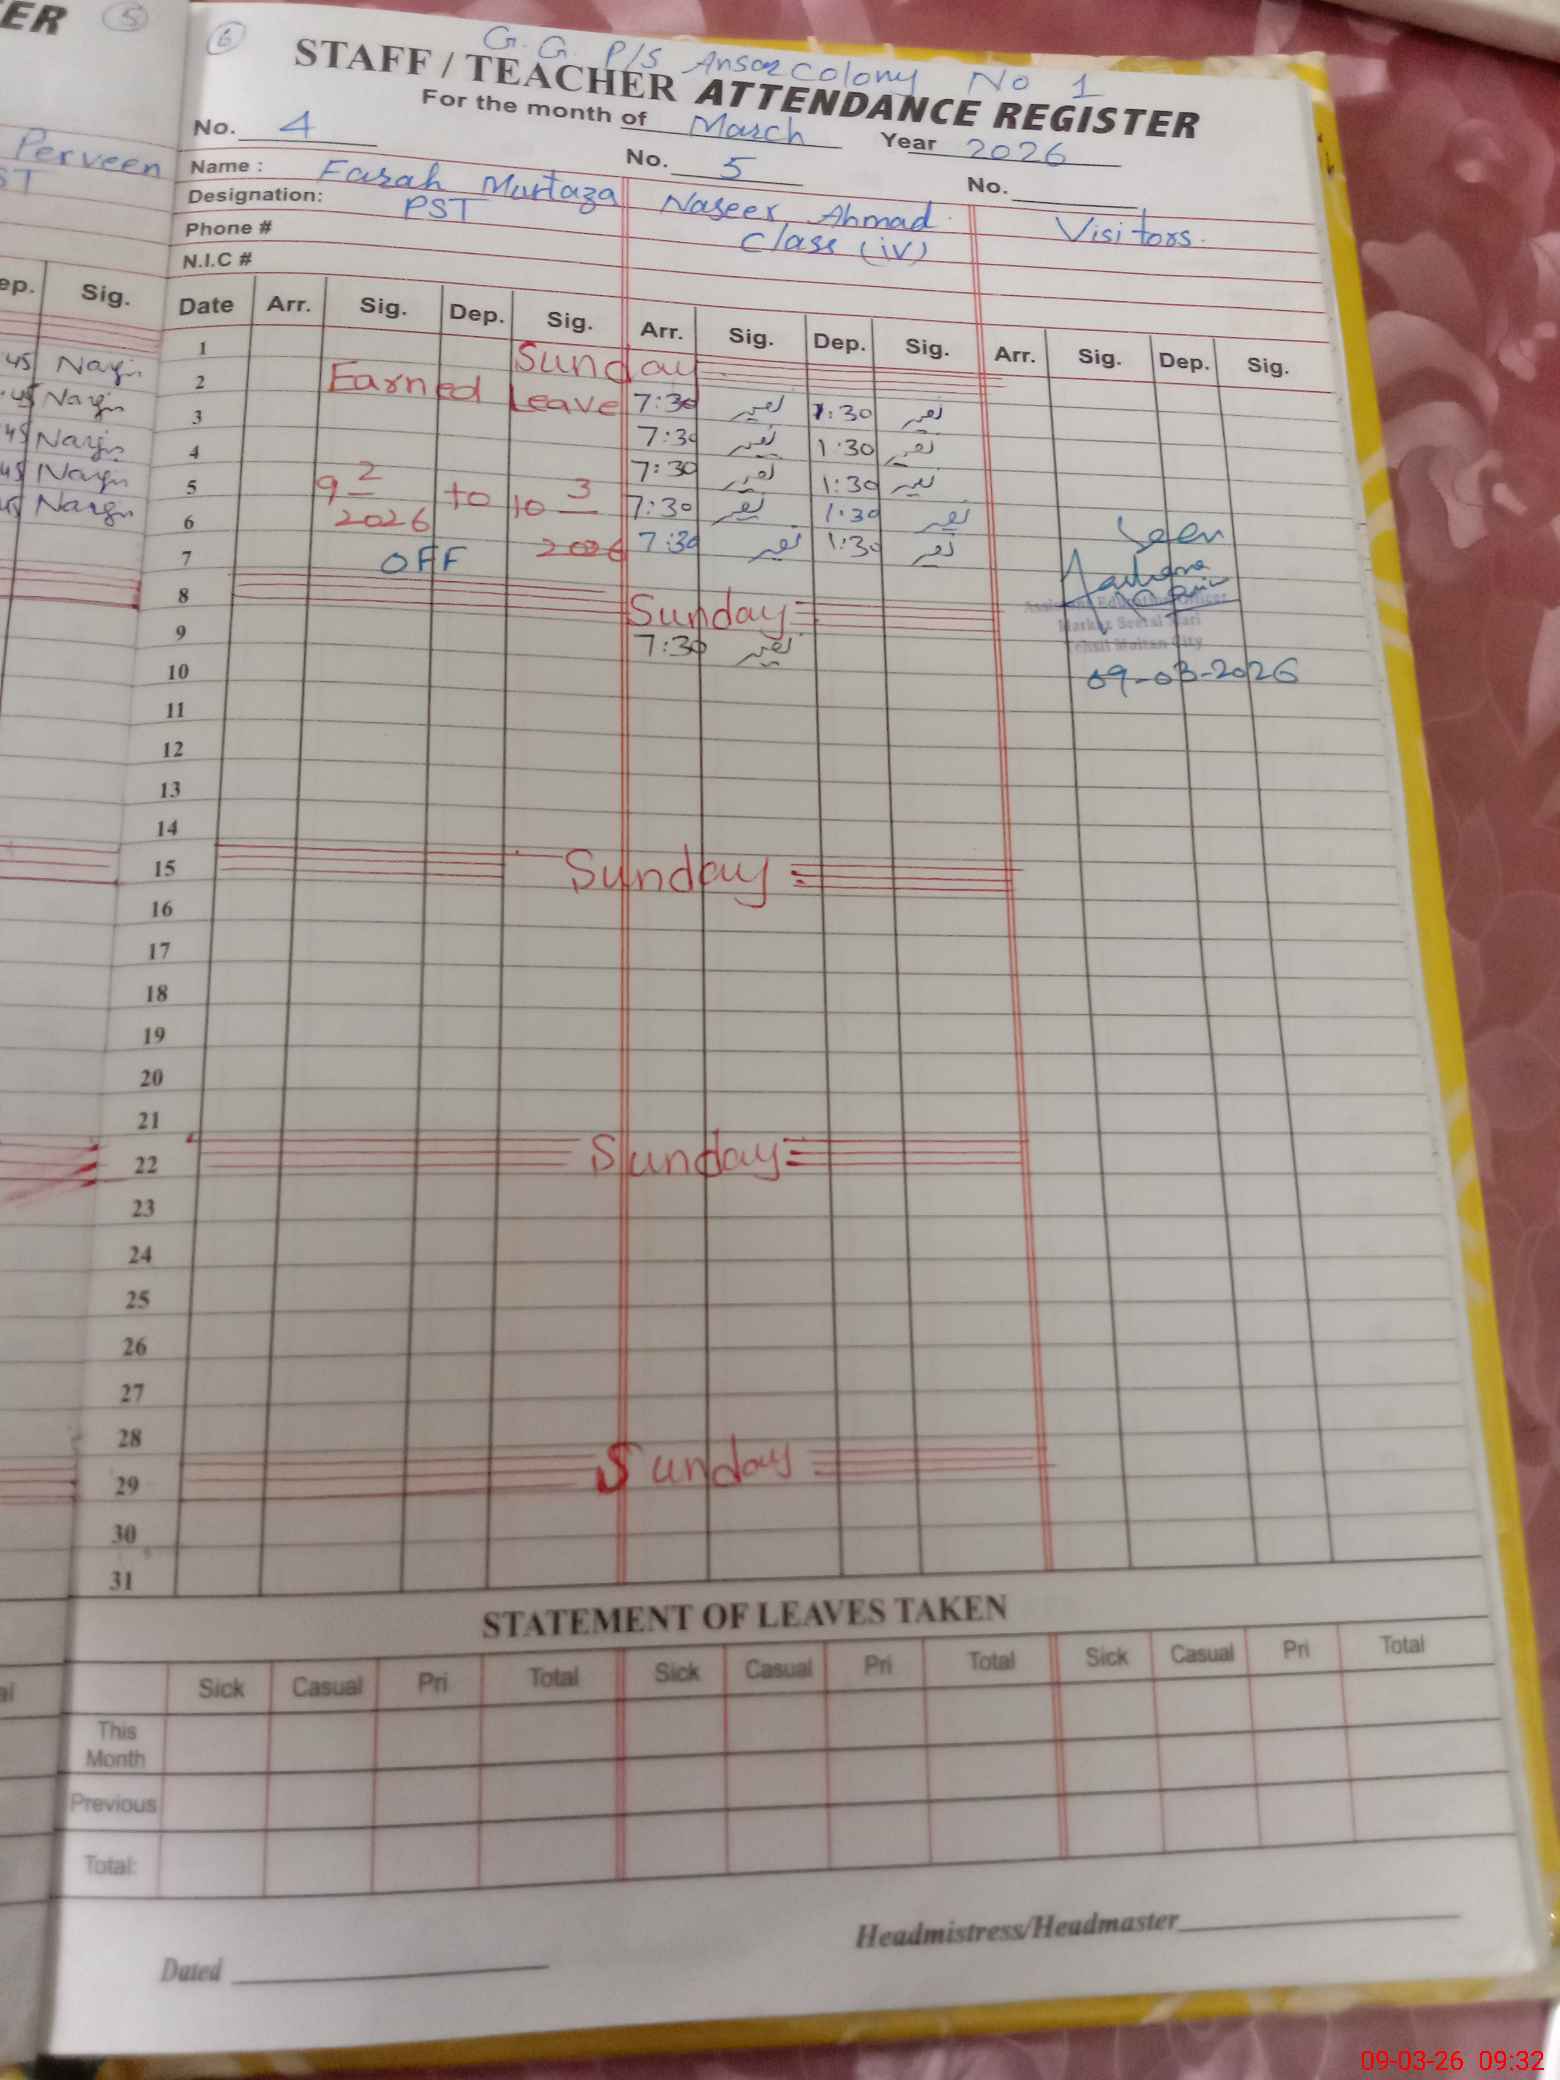 ER 5
6
G.G. P/S Ansar Colony No 1
STAFF / TEACHER ATTENDANCE REGISTER
For the month of March Year 2026
No. 4 No. 5 No.
Perveen
ST
Name : Farah Murtaza Naseer Ahmad Visitors.
Designation: PST Class (iv)
Phone #
N.I.C #
ep. Sig.
Date Arr. Sig. Dep. Sig. Arr. Sig. Dep. Sig. Arr. Sig. Dep. Sig.
1 Sunday
2 Earned Leave 7:30 نصیر 1:30 نصیر
3 7:30 نصیر 1:30 نصیر
4 7:30 نصیر 1:30 نصیر
5 9 2 2026 to 10 3 2026 7:30 نصیر 1:30 نصیر
6 7:30 نصیر 1:30 نصیر
7 OFF
Seen
8 Sunday
Assistant Education Officer
Markaz Seetal Mari
Tehsil Multan City
9 7:30 نصیر
09-03-2026
10
11
12
13
14
15 Sunday
16
17
18
19
20
21
22 Sunday
23
24
25
26
27
28
29 Sunday
30
31
STATEMENT OF LEAVES TAKEN
Sick Casual Pri Total Sick Casual Pri Total Sick Casual Pri Total
This Month
Previous
Total:
Headmistress/Headmaster
Dated
09-03-26 09:32